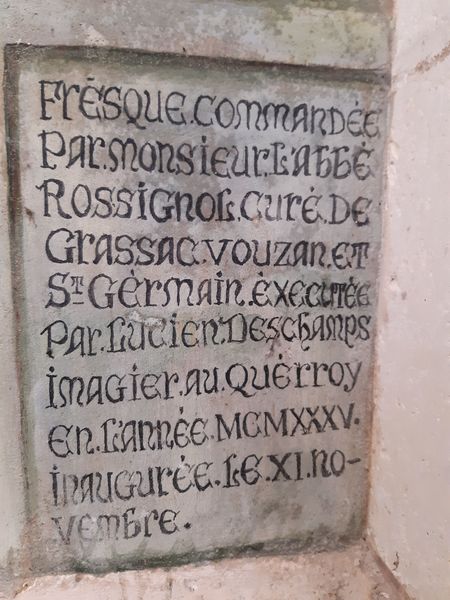 FRÈSQUE.COMMANDÉE
PAR.MONSIEUR.L'ABBÉ
ROSSIGNOL.CURÉ.DE
GRASSAC.VOUZAN.ET
ST.GÈRMAIN.ÈXECUTÉE
PAR.LUCIEN.DESCHAMPS
IMAGIER.AU.QUÈRROY
EN.L'ANNÉE.MCMXXXV.
INAUGURÉE.LE.XI.NO-
VEMBRE.